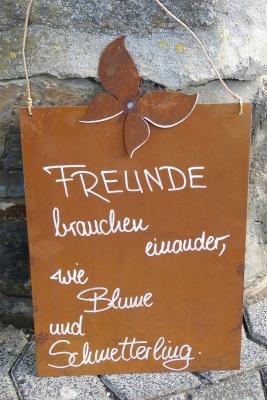 FREUNDE
brauchen
einander,
wie
Blume
und
Schmetterling.